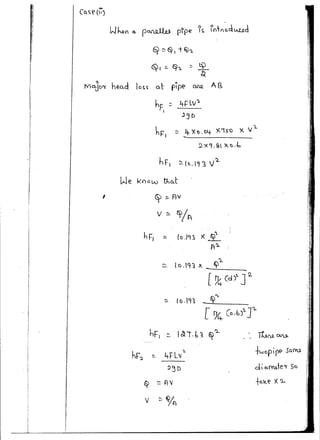 Case(ii)
When a parallel pipe is introduced
Q = Q₁ + Q₂
Q₁ = Q₂ = Q/2
Major head loss at pipe are AB
hF₁ = 4FLV²/2gD
hF₁ = 4 × 0.04 × 750 × V² / 2×9.81×0.6
hF₁ = 10.193 V²
We know that
Q = AV
V = Q/A
hF₁ = 10.193 × Q²/A²
= 10.193 × Q²/[π/4 (d)²]²
= 10.193 Q²/[π/4 (0.6)²]²
hF₁ = 127.63 Q² ∴ There are
hF₂ = 4FLV²/2gD twopipe same
diameter so
Q = AV take × 2
V = Q/A